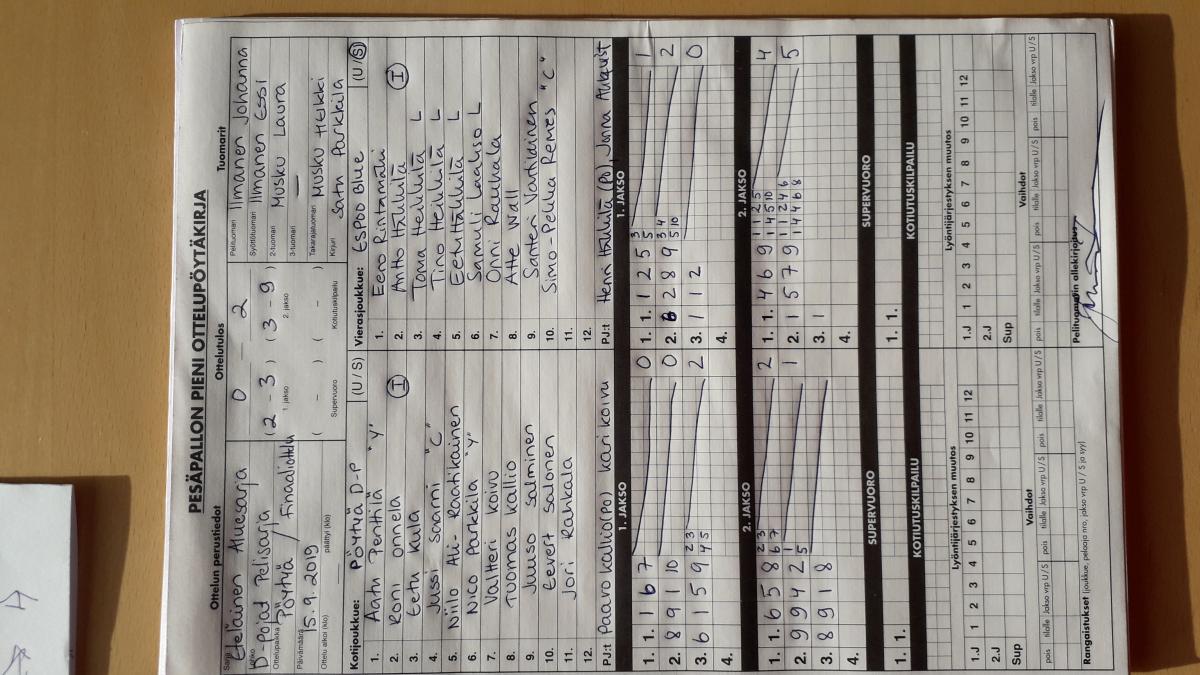 PESÄPALLON PIENI OTTELUPÖYTÄKIRJA
Ottelun perustiedot
Ottelutulos
Tuomarit
Sarja Eteläinen Aluesarja
Lohko D-Pojat Pelisarja
Ottelupaikka Pöytyä / Finaaliottelu
Päivämäärä 15.9.2019
Ottelu alkoi (klo) päättyi (klo)
0 - 2
(2 - 3) (3 - 9)
1. jakso 2. jakso
( - ) ( - )
Supervuoro Kotiutuskilpailu
Pelituomari Ilmanen Johanna
Syöttötuomari Ilmanen Essi
2-tuomari Musku Laura
3-tuomari —
Takarajatuomari Musku Heikki
Kirjuri Satu Parkkila
Kotijoukkue: PÖYTYÄ D-P (U / S)
1. Aatu Penttilä "Y"
2. Roni Onnela I
3. Eetu Kula
4. Jussi Saarni "C"
5. Niilo Ali-Raatikainen
6. Nico Parkkila "Y"
7. Valtteri Koivu
8. Tuomas Kallio
9. Juuso Salminen
10. Eevert Salonen
11. Jori Rahkala
12.
PJ:t Paavo Kallio (PO) Kari Koivu
Vierasjoukkue: ESPOO Blue (U/S)
1. Eero Rintamäki
2. Antto Häkkilä I
3. Toma Heikkilä L
4. Tino Heikkilä L
5. Eetu Häkkilä L
6. Samuli Laakso L
7. Onni Rauhala
8. Atte Wall
9. Santeri Vartiainen
10. Simo-Pekka Remes "C"
11.
12.
PJ:t Henri Häkkilä (PO), Jonna
1. JAKSO
1. 1. 1 6 7 0
2. 8 9 1 10 0
3. 6 1 5 9 2 3 4 5 2
4.
1. JAKSO
1. 1. 1 2 5 3 5 1
2. 6 2 8 9 3 4 5 10 2
3. 1 1 2 0
4.
2. JAKSO
1. 1. 6 5 8 2 3 6 7 2
2. 9 9 4 2 1 5 1
3. 8 9 1 8
4.
2. JAKSO
1. 1. 4 6 9 1 1 2 5 1 4 5 10 4
2. 1 5 7 9 1 1 2 4 6 1 4 4 6 8 5
3. 1
4.
SUPERVUORO
1. 1.
SUPERVUORO
1. 1.
KOTIUTUSKILPAILU
KOTIUTUSKILPAILU
Lyöntijärjestyksen muutos
1.J 1 2 3 4 5 6 7 8 9 10 11 12
2.J
Sup
Lyöntijärjestyksen muutos
1.J 1 2 3 4 5 6 7 8 9 10 11 12
2.J
Sup
Vaihdot
pois tilalle Jakso vrp U / S pois tilalle Jakso vrp U / S pois tilalle Jakso vrp U / S
Vaihdot
pois tilalle Jakso vrp U / S pois tilalle Jakso vrp U / S pois tilalle Jakso vrp U / S
Rangaistukset (joukkue, pelaaja nro, jakso vrp U / S ja syy)
Pelituomarin allekirjoitus